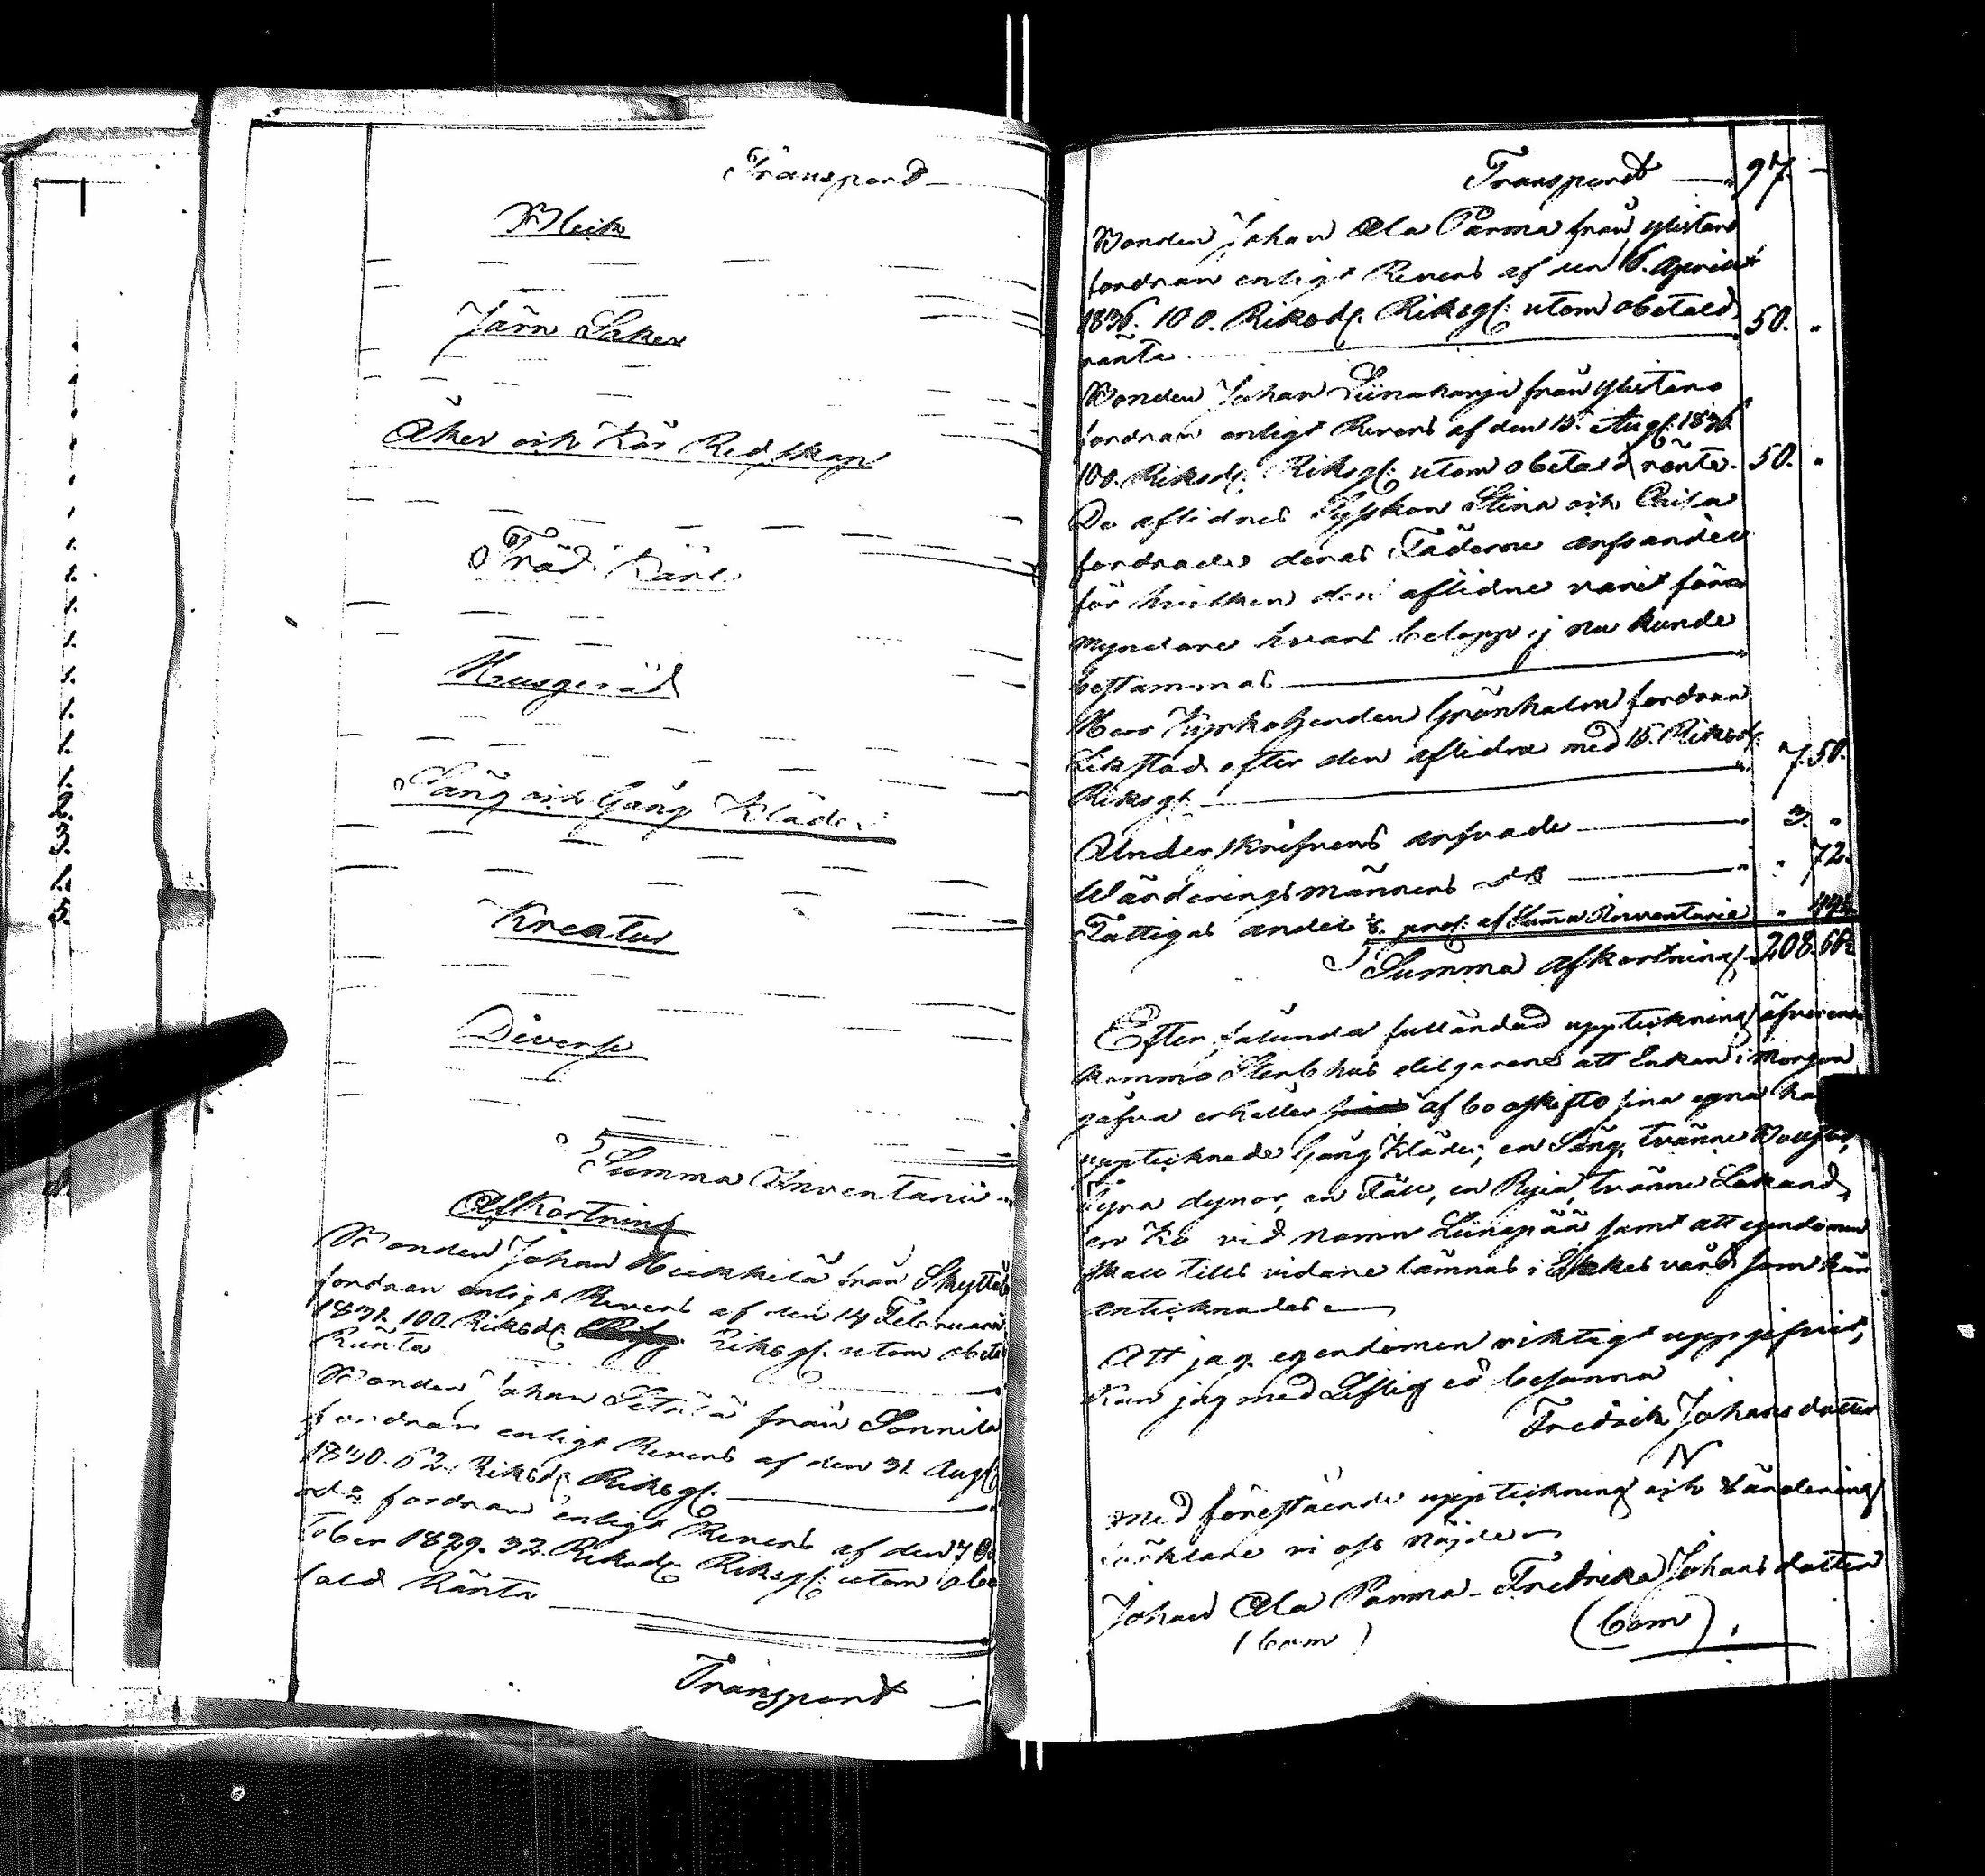 Transport
Bleck
Järn Saker
Åker och Kör Redskap
Träd Kärl
Husgeråd
Säng och Gång Kläder
Kreatur
Diverse
Summa Inventarii
Afkortning
Bonden Johan Heikkilä från Skyttälä
fordran enligt Revers af den 14 Februarii
1831. 100. Riksd. Riksgl. utom obetald
Ränta
Bonden Johan från Sonnila
fordran enligt Revers af den 31 Aug.
1830. 62. Riksd. Riksgl.
fordran enligt Revers af den 7 Oc
tober 1829. 32. Riksd. Riksgl. utom obe
tald Ränta
Transport
Transport 97. —
Bonden Johan Ala Parma från Ylistaro
fordran enligt Revers af den 6. Aprill
1836. 100. Riksd. Riksgl. utom obetald 50. "
ränta
Bonden Johan Liinaharja från Ylistaro
fordran enligt Revers af den 15. Aug. 1836.
100. Riksd. Riksgl. utom obetald ränta. 50. "
De aflidnes Syskon Stina och Caisa
fordrade deras Fäderne
för hvilken den aflidne varit för
myndare hvars belopp ej nu kunde
bestämmas
Herr Kyrkoherden Grönholm fordran
Likstod efter den aflidne med 15. Riksd. 7. 50.
Riksgl.
Underskrifvens arfvode 3. "
Wärderingsmännens d:o " 72.
Fattigas andel 1/8 proc. af Summa Inventarie "
Summa afkortning 208. 66½
Efter sålunda fulländad uppteckning öfverens
kommo Sterbhus delgarene att Enkan i Morgon
gåfva erhåller af bo oskifto sina egna
upptecknade Gång Kläder, en Säng, tvänne Bolster,
fyra dynor, en Fäll, en Ryia, tvänne Lakand,
en Ko vid namn Liinapää samt att egendomen
skall tills vidare lämnas i Enkes vård som här
antecknades
Att jag egendomen riktigt uppgifvit,
Kan jag med Liflig ed besanna
Fredrik Johans dotter
N
Med förestående uppteckning och Värdering
förklare vi oss nöjde
Johan Ala Parma - Fredrika Johans dotter
(bom) (bom)